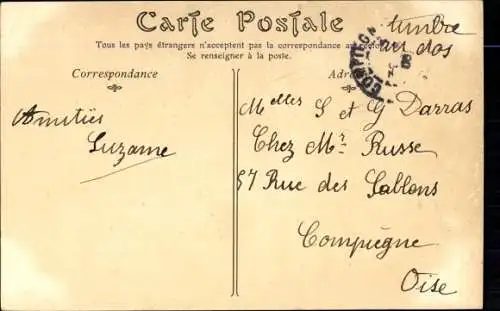 Carte Postale
timbre
au dos
Tous les pays étrangers n'acceptent pas la correspondance au
Se renseigner à la poste.
Correspondance
Adr
COMPIÈGN
Amitiés
Suzanne
Melles S et G Darras
Chez Mr Russe
57 Rue des Sablons
Compiègne
Oise